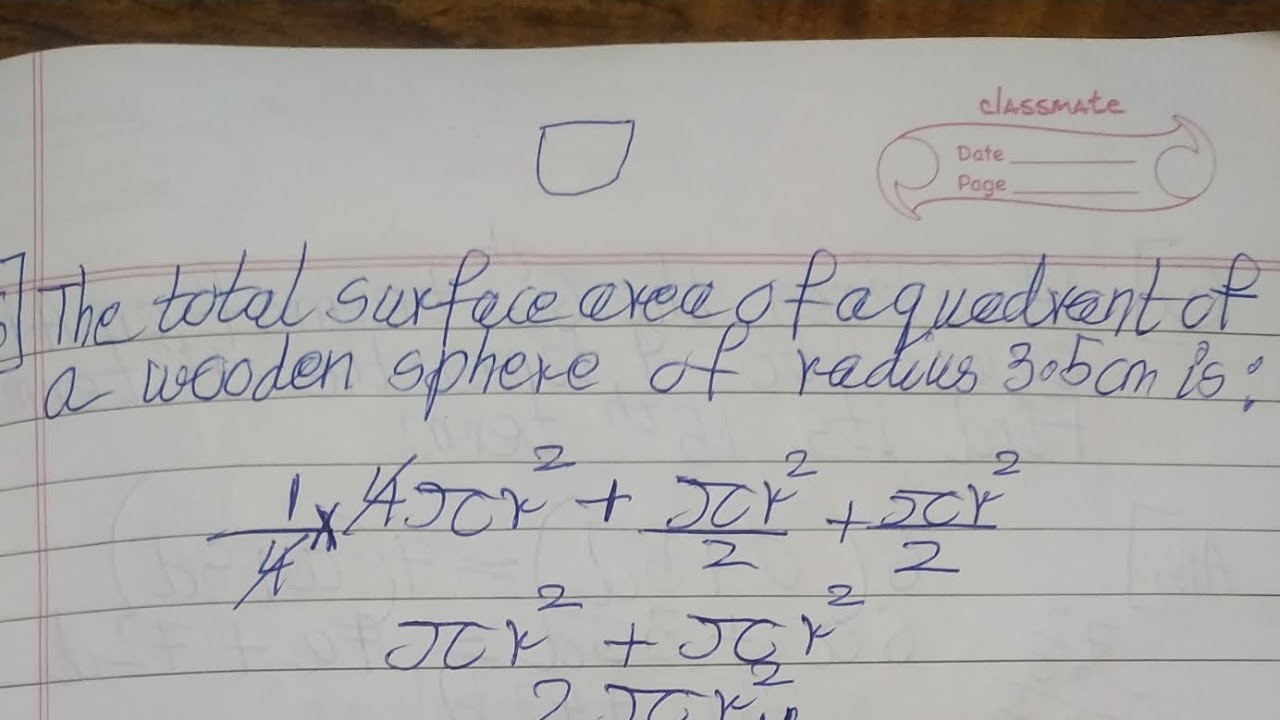 classmate
Date
Page
The total surface area of a quadrant of
a wooden sphere of radius 3.5cm is:
1/4 x 4πr² + πr²/2 + πr²/2
πr² + πr²
2πr²